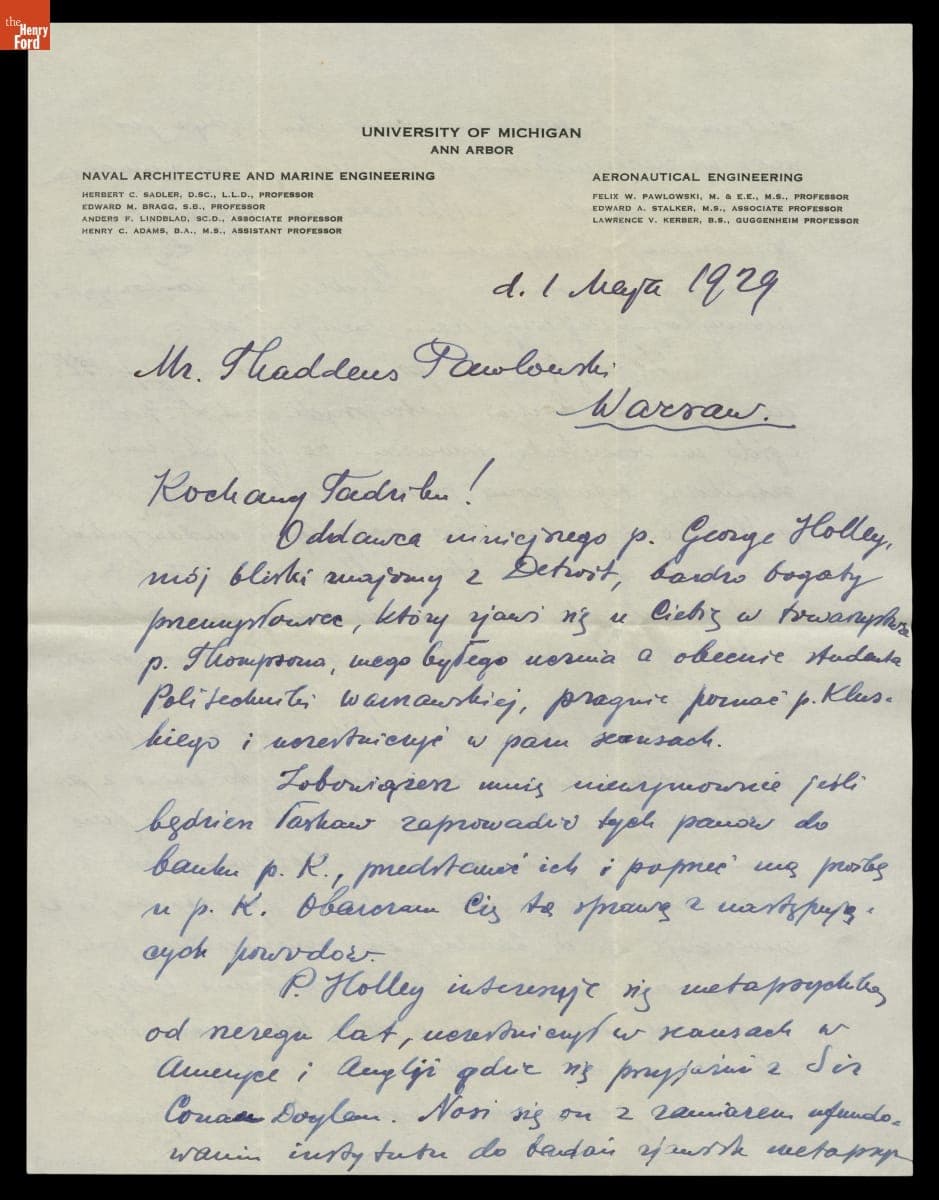 the
Henry
Ford
UNIVERSITY OF MICHIGAN
ANN ARBOR
NAVAL ARCHITECTURE AND MARINE ENGINEERING
HERBERT C. SADLER, D.SC., L.L.D., PROFESSOR
EDWARD M. BRAGG, S.B., PROFESSOR
ANDERS F. LINDBLAD, SC.D., ASSOCIATE PROFESSOR
HENRY C. ADAMS, B.A., M.S., ASSISTANT PROFESSOR
AERONAUTICAL ENGINEERING
FELIX W. PAWLOWSKI, M. & E.E., M.S., PROFESSOR
EDWARD A. STALKER, M.S., ASSOCIATE PROFESSOR
LAWRENCE V. KERBER, B.S., GUGGENHEIM PROFESSOR
d. 1 Maja 1929
Mr. Thaddeus Pawlowski
Warsaw.
Kochany Tadziku!
Oddawca niniejszego p. George Holley,
mój bliski znajomy z Detroit, bardzo bogaty
przemysłowiec, który zjawi się u Ciebie w towarzystwie
p. Thompsona, mego byłego ucznia a obecnie studenta
Politechniki Warszawskiej, pragnie poznać p. Klus-
kiego i uczestniczyć w paru seansach.
Zobowiążesz mnię niewymownie jeśli
będziesz łaskaw zaprowadzić tych panów do
banku p. K., przedstawić ich i poprzeć mą prośbę
u p. K. Obarczam Cię tą sprawą z następują-
cych powodów.
P. Holley interesuje się metapsychiką
od szeregu lat, uczestniczył w seansach w
Ameryce i Anglji gdzie się przyjaźni z Sir
Conan Doylem. Nosi się on z zamiarem ufundo-
wania instytutu do badań zjawisk metapsy